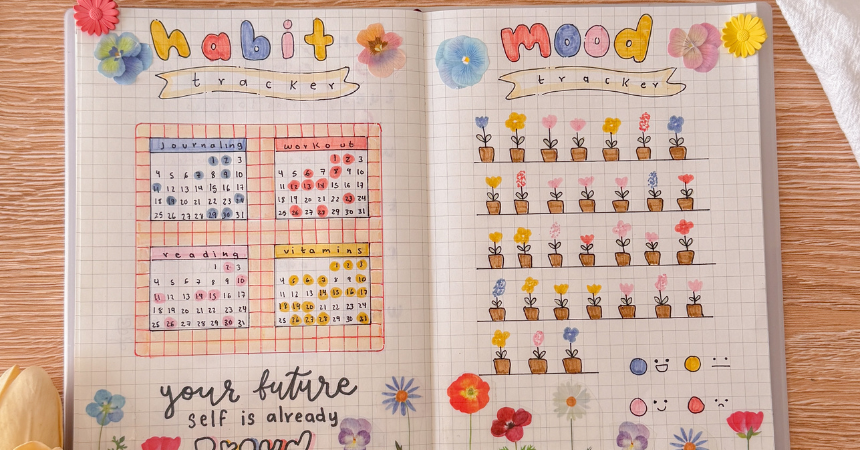 habit
tracker
journaling
1 2 3
4 5 6 7 8 9 10
11 12 13 14 15 16 17
18 19 20 21 22 23 24
25 26 27 28 29 30 31
workout
1 2 3
4 5 6 7 8 9 10
11 12 13 14 15 16 17
18 19 20 21 22 23 24
25 26 27 28 29 30 31
reading
1 2 3
4 5 6 7 8 9 10
11 12 13 14 15 16 17
18 19 20 21 22 23 24
25 26 27 28 29 30 31
vitamins
1 2 3
4 5 6 7 8 9 10
11 12 13 14 15 16 17
18 19 20 21 22 23 24
25 26 27 28 29 30 31
your future
self is already
mood
tracker